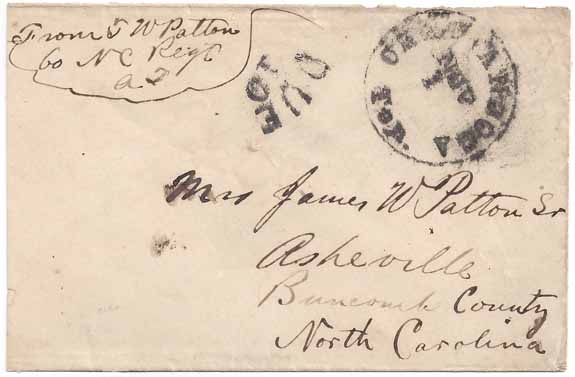 From T W Patton
60 N C Regt
DUE
10
Mrs James W Patton Sr
Asheville
Buncomb County
North Carolina